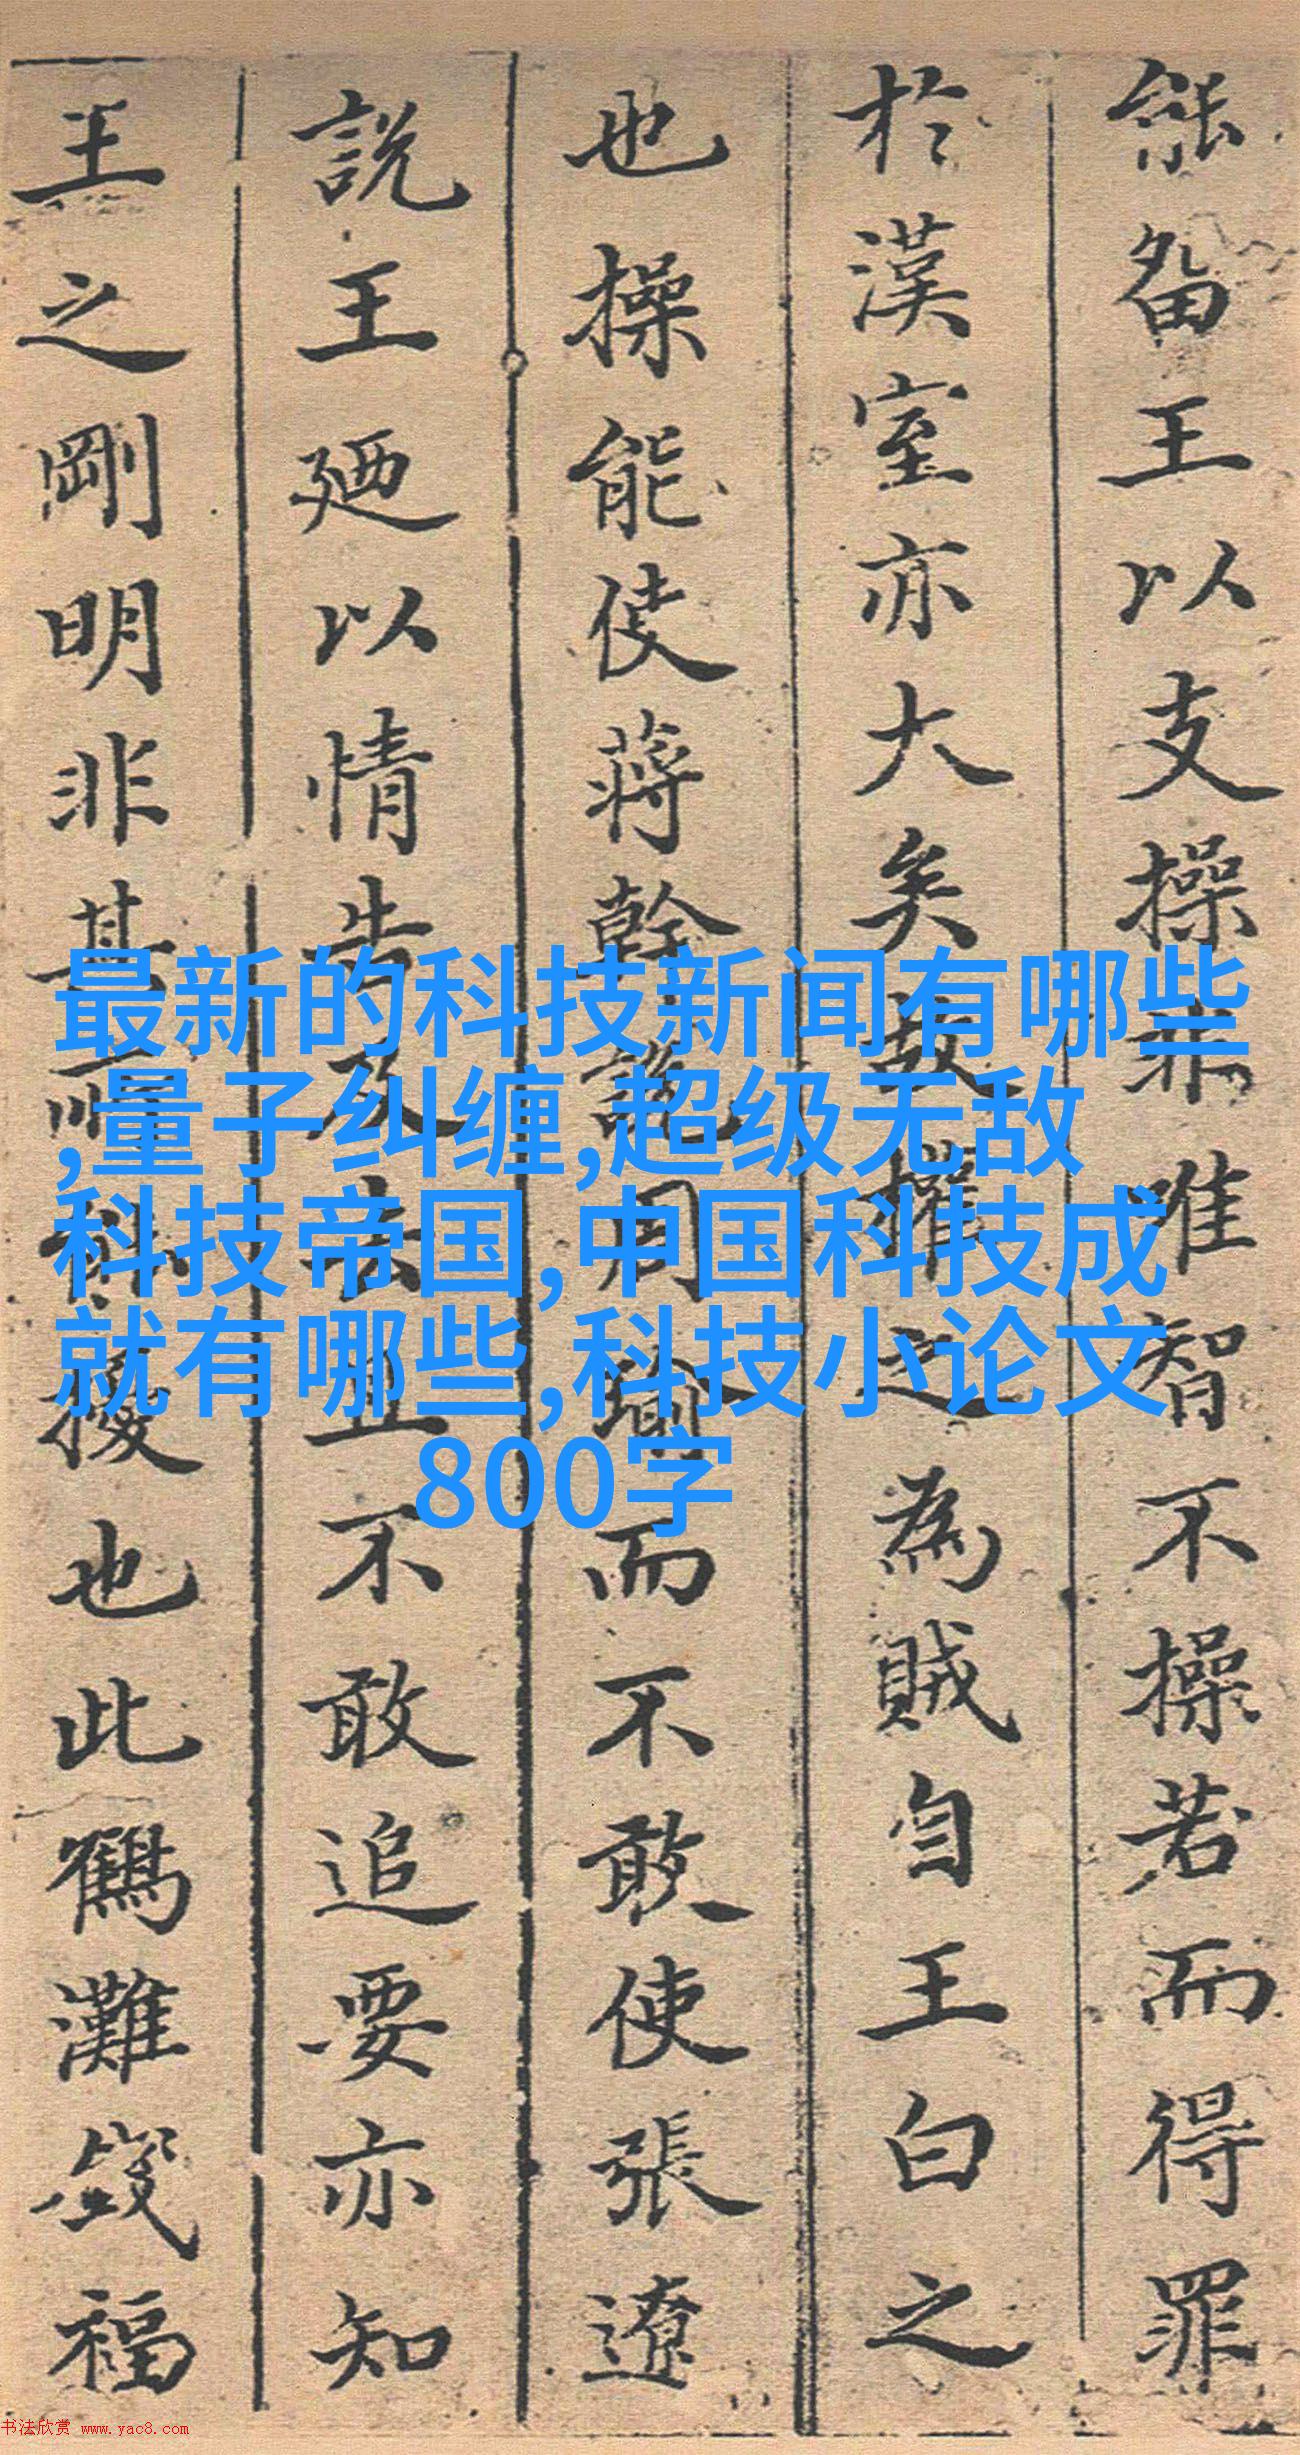 能留王以支操非唯智不操若而得罪
於漢室亦大矣故權之為賊王白之
也操能使蔣幹說周瑜而不敢使張遼
說王廼以情告及去且不敢追要亦知
王之剛明非也此鶴灘福
最新的科技新闻有哪些
,量子纠缠,超级无敌
科技帝国,中国科技成
就有哪些,科技小论文
800字
书法欣赏 www.yac8.com